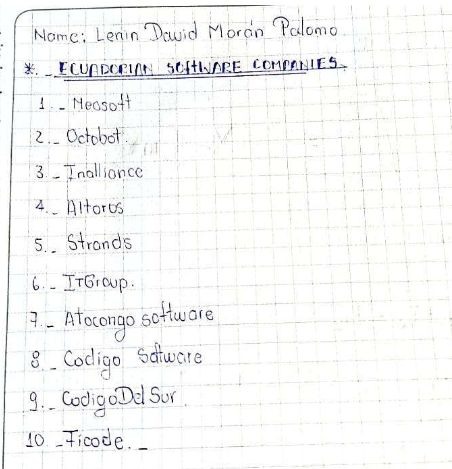 Name: Lenin David Morán Palomo
*.- ECUADORIAN SOFTWARE COMPANIES.
1.- Meosoft
2.- Octobot.
3.- Inalliance
4.- Altoros
5.- Strands
6.- ITGroup.
7.- Atocongo software
8.- Codigo Software
9.- CodigoDelSur
10.- Ficode.-